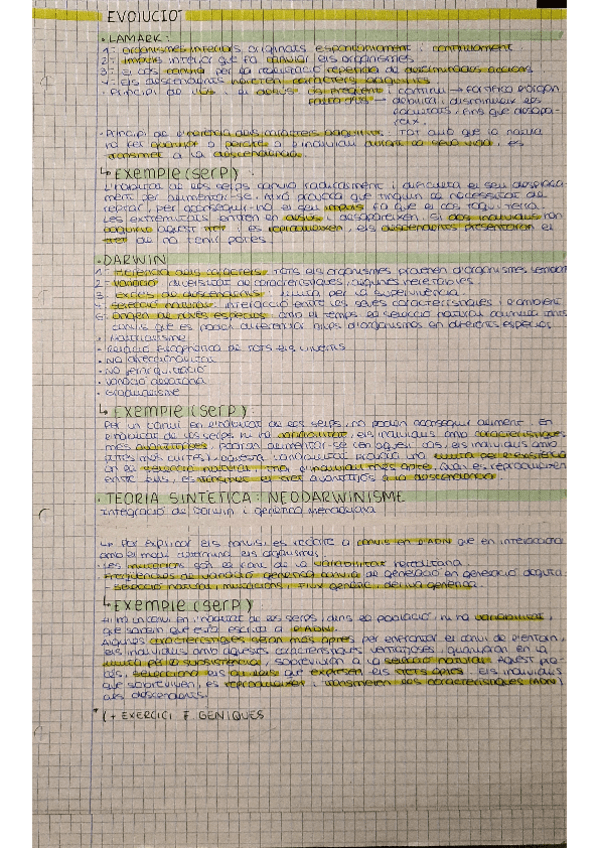 EVOLUCIÓ
• LAMARK:
1- organismes inferiors originats espontàniament i contínuament.
2- impuls interior que fa canviar els organismes
3- si cos canvia per la realització repetida de determinades accions
4- els descendents hereten caràcters adquirits
• Principi de l'ús i el desús: ús freqüent i continu → fortifica òrgan
falta d'ús → debilita i disminueix els
facultats, fins que desapa-
reix.
• Principi de l'herència dels caràcters adquirits: Tot allò que la natura
ha fet guanyar o perdre a l'individu durant la seva vida, es
transmet a la descendència.
↳ Exemple (serp)
L'hàbitat de les serps canvia radicalment i dificulta el seu desplaça-
ment per alimentar-se. Això provoca que tinguin la necessitat de
reptar, per aconseguir-ho el seu impuls fa que el cos toqui terra.
Les extremitats entren en desús i desapareixen. Si dos individus han
adquirit aquest tret i es reprodueixen, els descendents presentaran el
tret de no tenir potes.
• DARWIN
1- Herència dels caràcters: Tots els organismes procedeixen d'organismes
2- Variació: diversitat de característiques, algunes heretables
3- Excés de descendents: lluita per la supervivència
4- selecció natural: interacció entre les seves característiques i l'ambient
5- Origen de noves espècies: amb el temps la selecció natural acumula
canvis que es poden diferenciar grups d'organismes en diferents espècies.
• Naturalisme
• Relació filogenètica de tots els vivents
• No direccionalitat
• No jerarquització
• Variació aleatòria
• Gradualisme
↳ Exemple (serp):
Per un canvi en l'hàbitat de les serps, no poden aconseguir aliment. En
l'hàbitat de les serps hi ha variabilitat, els individus amb característiques
més avantatjoses podran alimentar-se en aquest cas, els individus amb
potes més curtes i aquesta variabilitat produirà una lluita per l'existència
on la selecció natural tria l'individu més apte, quan es reprodueixen
entre ells, es transmet el tret avantatjós a la descendència.
• TEORIA SINTÈTICA: NEODARWINISME
Integració de Darwin i genètica mendeliana
↳ Per explicar els canvis es recorre a canvis en l'ADN que en interacció
amb el medi determina els organismes.
• Les mutacions són la font de la variabilitat hereditària.
• Freqüències de variació genètica canvia de generació en generació degut a
selecció natural, mutacions i flux genètic, deriva genètica.
↳ Exemple (serp)
Hi ha un canvi en l'hàbitat de les serps, dins la població, hi ha variabilitat,
que sabem que està escrita a l'ADN.
Algunes característiques seran més aptes per enfrontar el canvi de l'entorn,
els individus amb aquestes característiques avantatjoses, guanyaran en la
lluita per la subsistència, sobreviuran a la selecció natural. Aquest pro-
cés, selecciona els al·lels que expressen els trets aptes. Els individus
que sobreviuen, es reprodueixen i transmeten les característiques (ADN)
als descendents.
* (+ EXERCICI F. GÈNIQUES